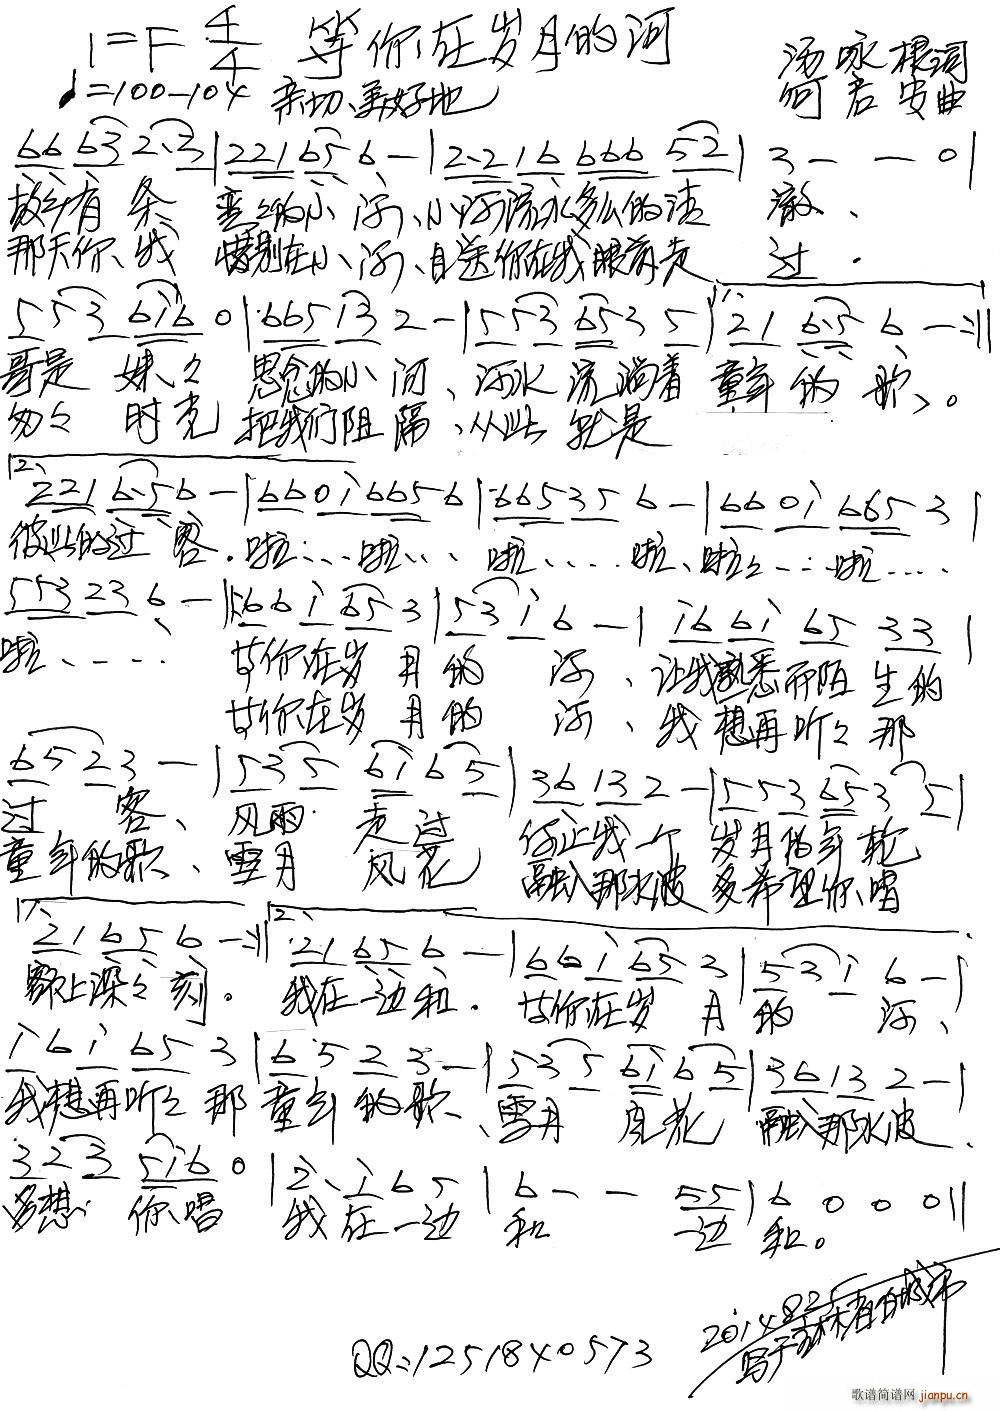 1=F 4/4 等你在岁月的河
♩=100—104 亲切、美好地
汤咏根词
何君安曲
66 63 2·3 | 221 65 6 — | 2·21 6 666 52 | 3 — — 0 |
故乡有条 弯弯的小河、小河流水多么的清澈、
那天你、我 惜别在小河、目送你在我眼前走过.
553 6i6 0 | 665 13 2 — | 553 653 5 | 1、21 6·5 6 — :||
哥是妹々 思念的小河、河水流淌着童年的歌、。
匆々时克 把我们阻隔、从此就是
2、221 6·5 6 — | 66 0i 665 6 | 665 35 6 — | 66 0i 665 3 |
彼此的过客. 啦…… 啦…… 啦…… 啦、啦々…… 啦……
553 23 6 — |: 66 i 65 3 | 53 i 6 — | i6 6i 65 33 |
啦、……
等你在岁月的河、让我熟悉而陌生的
等你在岁月的河、我想再听々那
6523 — | 535 6i 65 | 36 13 2 — | 553 653 5 |
过客、风雨走过 你让我一个 岁月的年轮
童年的歌、雪月风花 融入那水波 多希望你唱
1、21 65 6 — :|| 2、21 65 6 — | 66 i 65 3 | 53 i 6 — |
额上深々刻。 我在一边和. 等你在岁月的河、
i 6 i 65 3 | 6 5 2 3 — | 535 6i 65 | 36 13 2 — |
我想再听々那童年的歌、雪月风花 融入那水波.
323 5i6 0 | 2 i 6 5 | 6 — — 55 | 6 0 0 0 ||
多想你唱 我在一边和 边和。
2014.8.25
QQ:1251840573
歌谱简谱网 jianpu.cn